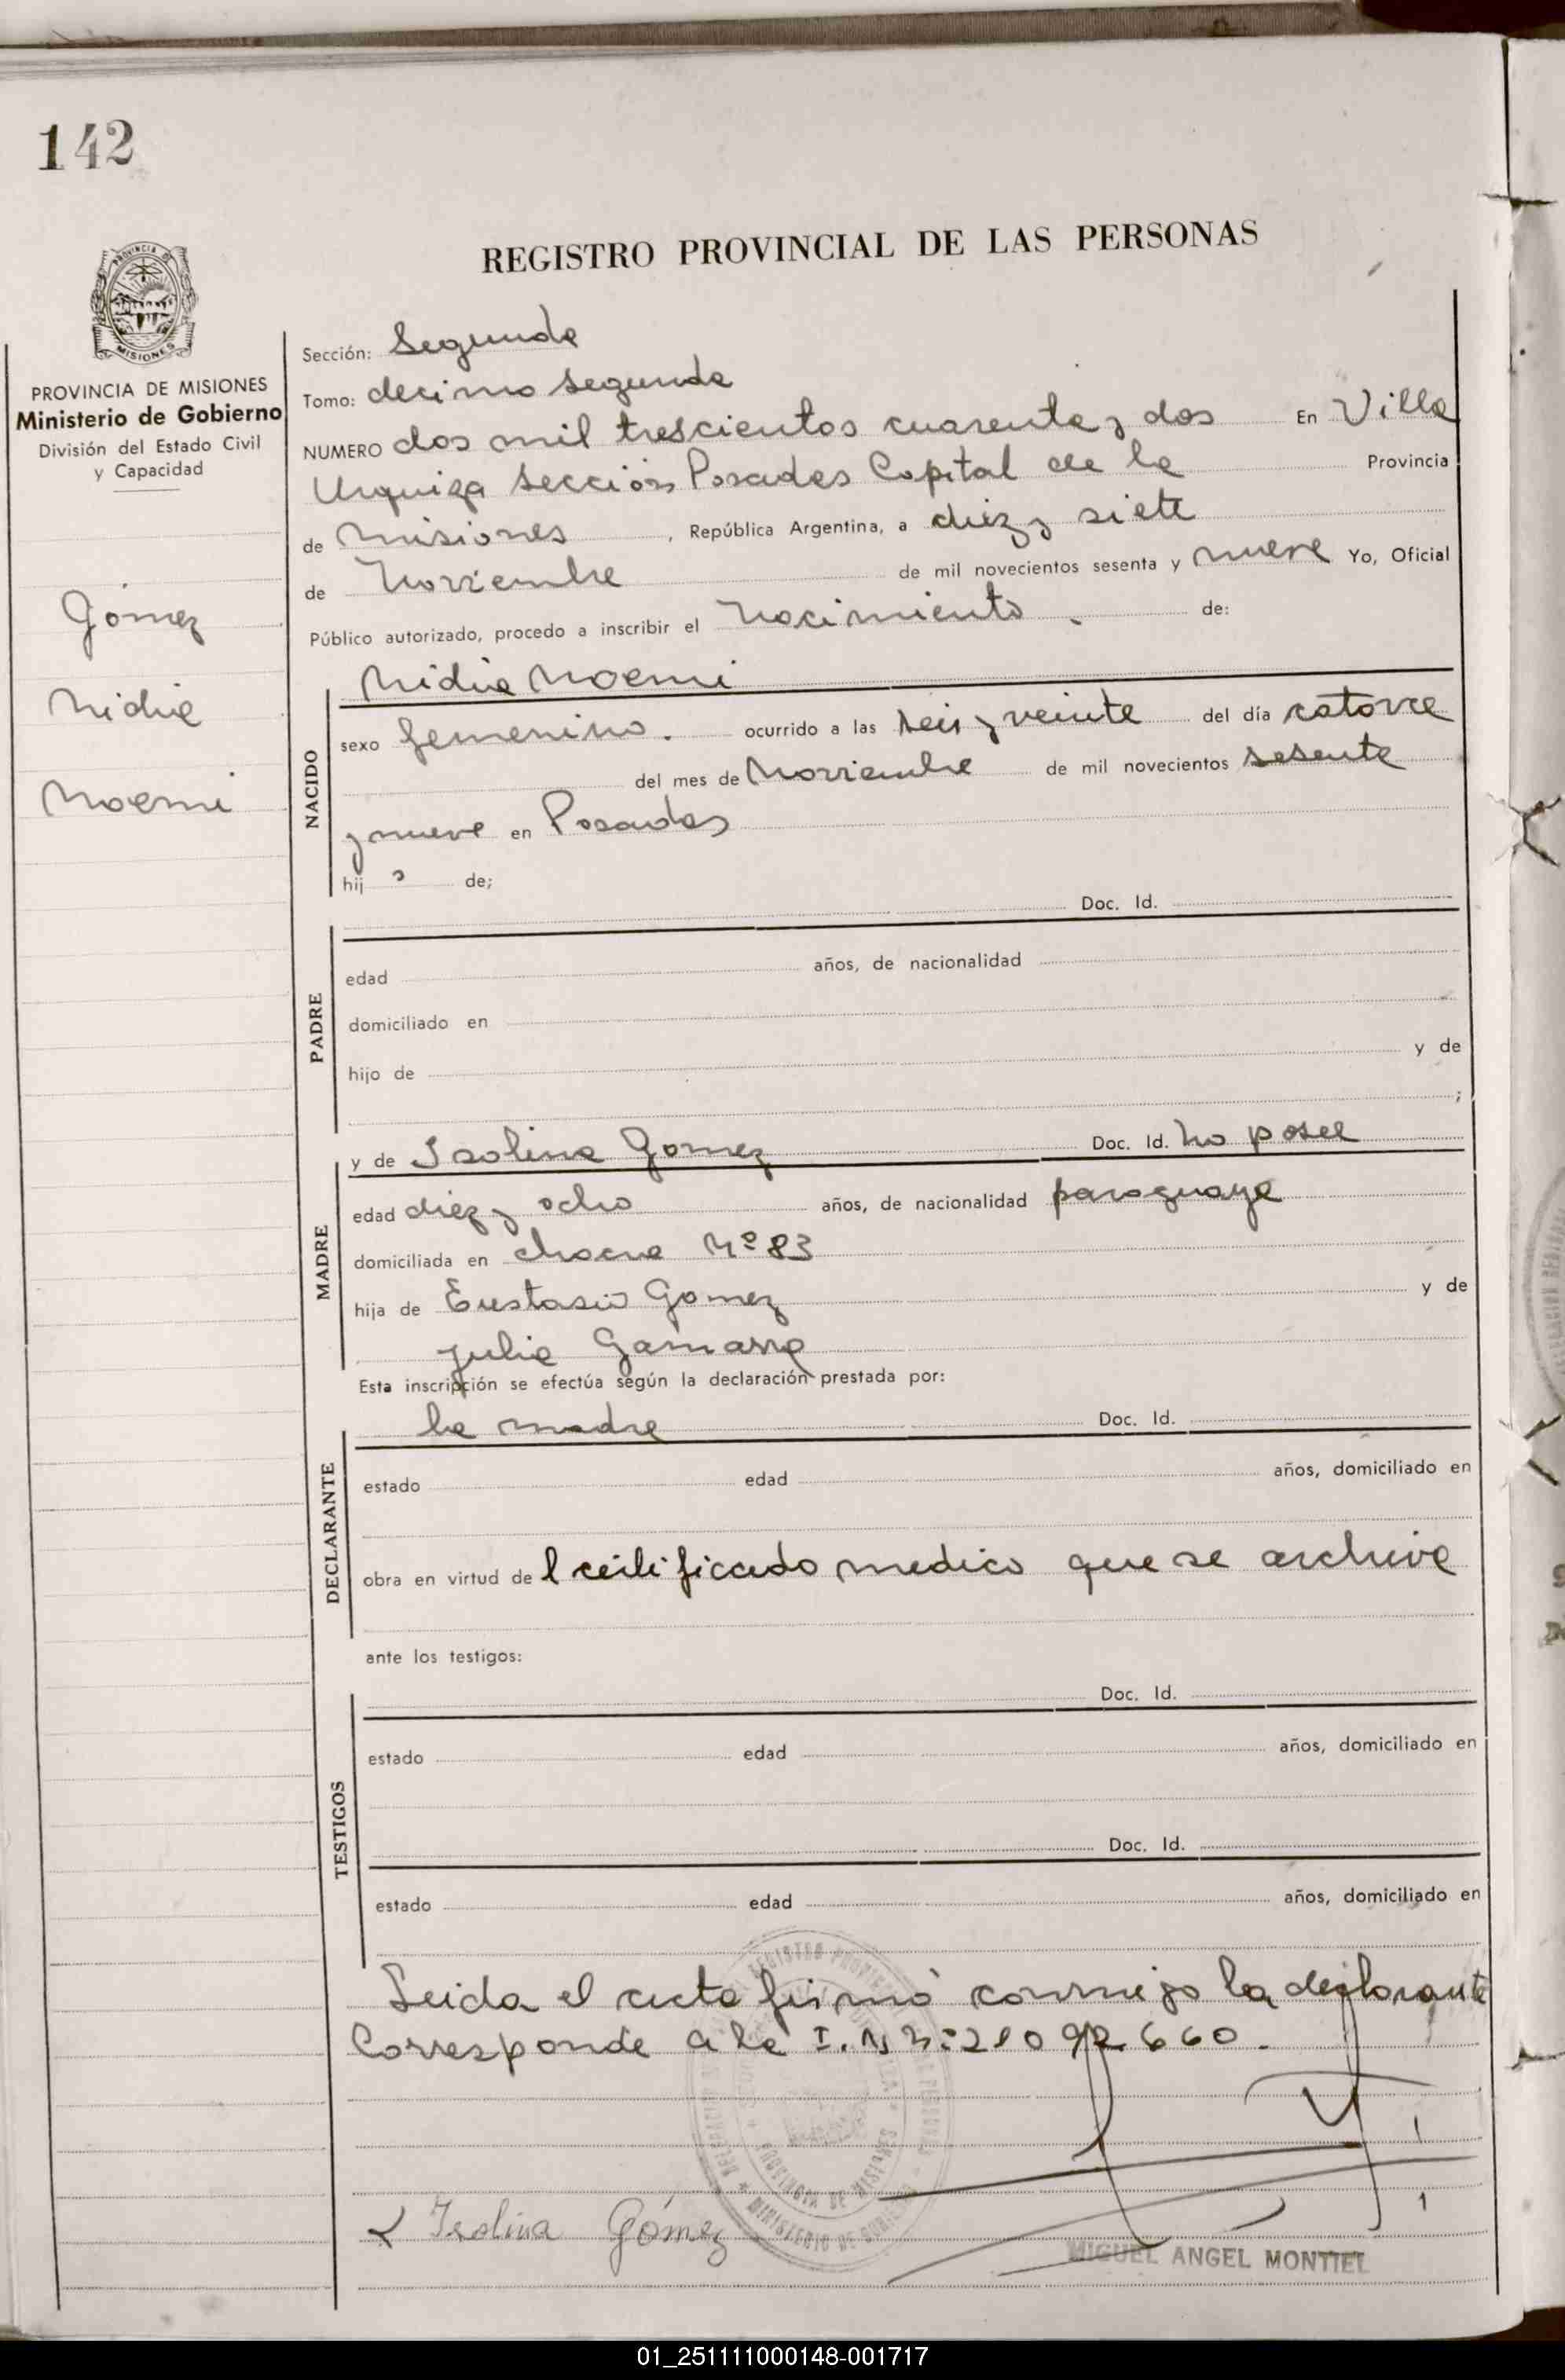 142
REGISTRO PROVINCIAL DE LAS PERSONAS
PROVINCIA DE MISIONES
Ministerio de Gobierno
División del Estado Civil
y Capacidad
Gómez
Nidia
Noemi
Sección: Segunda
Tomo: decimo segunda
NUMERO dos mil trescientos cuarenta y dos En Villa
Urquiza sección Posadas Capital de la Provincia
de Misiones, República Argentina, a diez y siete
de Noviembre de mil novecientos sesenta y nueve Yo, Oficial
Público autorizado, procedo a inscribir el Nacimiento. de:
NACIDO
Nidia Noemi
sexo femenino. ocurrido a las seis y veinte del día catorce
del mes de Noviembre de mil novecientos sesenta
y nueve en Posadas
hij a de;
Doc. Id.
PADRE
edad años, de nacionalidad
domiciliado en
hijo de y de
;
y de Isolina Gomez Doc. Id. No posee
MADRE
edad diez y ocho años, de nacionalidad paraguaya
domiciliada en chacra Nº 83
hija de Eustasio Gomez y de
Julia Gamarra
Esta inscripción se efectúa según la declaración prestada por:
la madre Doc. Id.
DECLARANTE
estado edad años, domiciliado en
obra en virtud de l certificado medico que se archiva
ante los testigos:
Doc. Id.
TESTIGOS
estado edad años, domiciliado en
Doc. Id.
estado edad años, domiciliado en
Leida el acta firmó conmigo la declarante
Corresponde a la I.N Nº 21092660.
Isolina Gómez
MIGUEL ANGEL MONTIEL
01_251111000148-001717